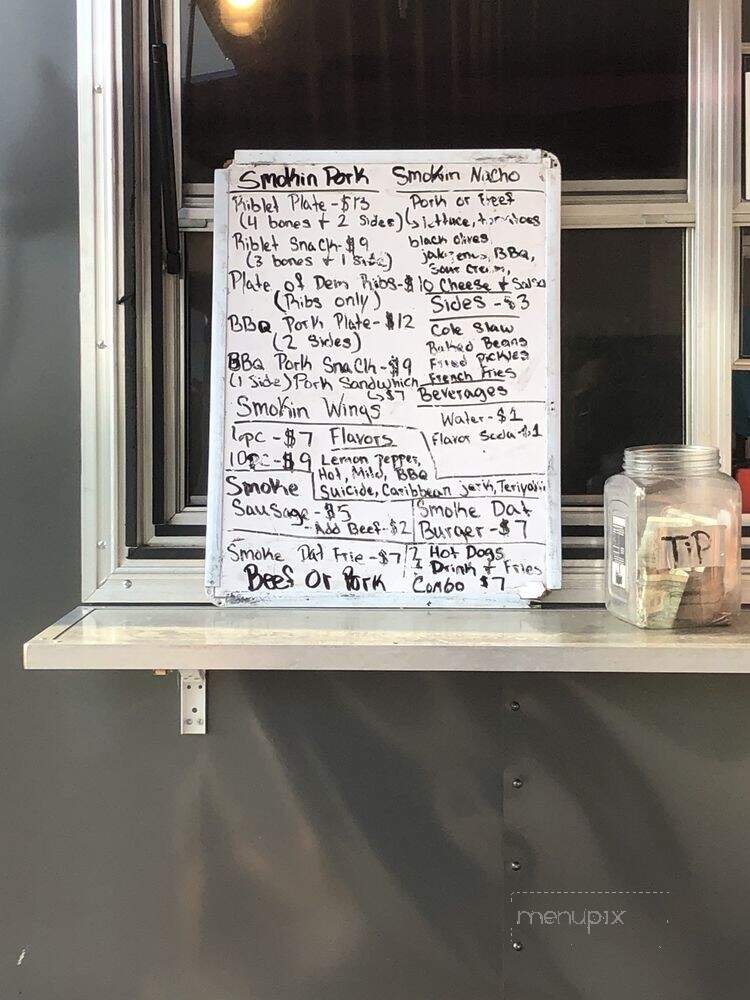 Smokin Pork
Riblet Plate - $13
(4 bones + 2 Sides)
Riblet Snack - $9
(3 bones + 1 Side)
Plate of Dem Ribs - $10
(Ribs only)
BBQ Pork Plate - $12
(2 Sides)
BBQ Pork Snack - $9
(1 Side) Pork Sandwhich
$7
Smokin Nacho
Pork or Beef
lettuce, tomatoes
black olives,
jalapenos, BBQ,
Sour Cream,
Cheese + Salsa
Sides - $3
Cole Slaw
Baked Beans
Fried Pickles
French Fries
Beverages
Water - $1
Flavor Soda - $1
Smokin Wings
- $7
10pc - $9
Flavors
Lemon Pepper,
Hot, Mild, BBQ
Suicide, Caribbean Jerk, Teriyaki
Smoke
Sausage - $5
- Add Beef - $2
Smoke Dat
Burger - $7
Smoke Dat Frie - $7
Beef Or Pork
2 Hot Dogs
Drink + Fries
Combo $7
TIP
menupix